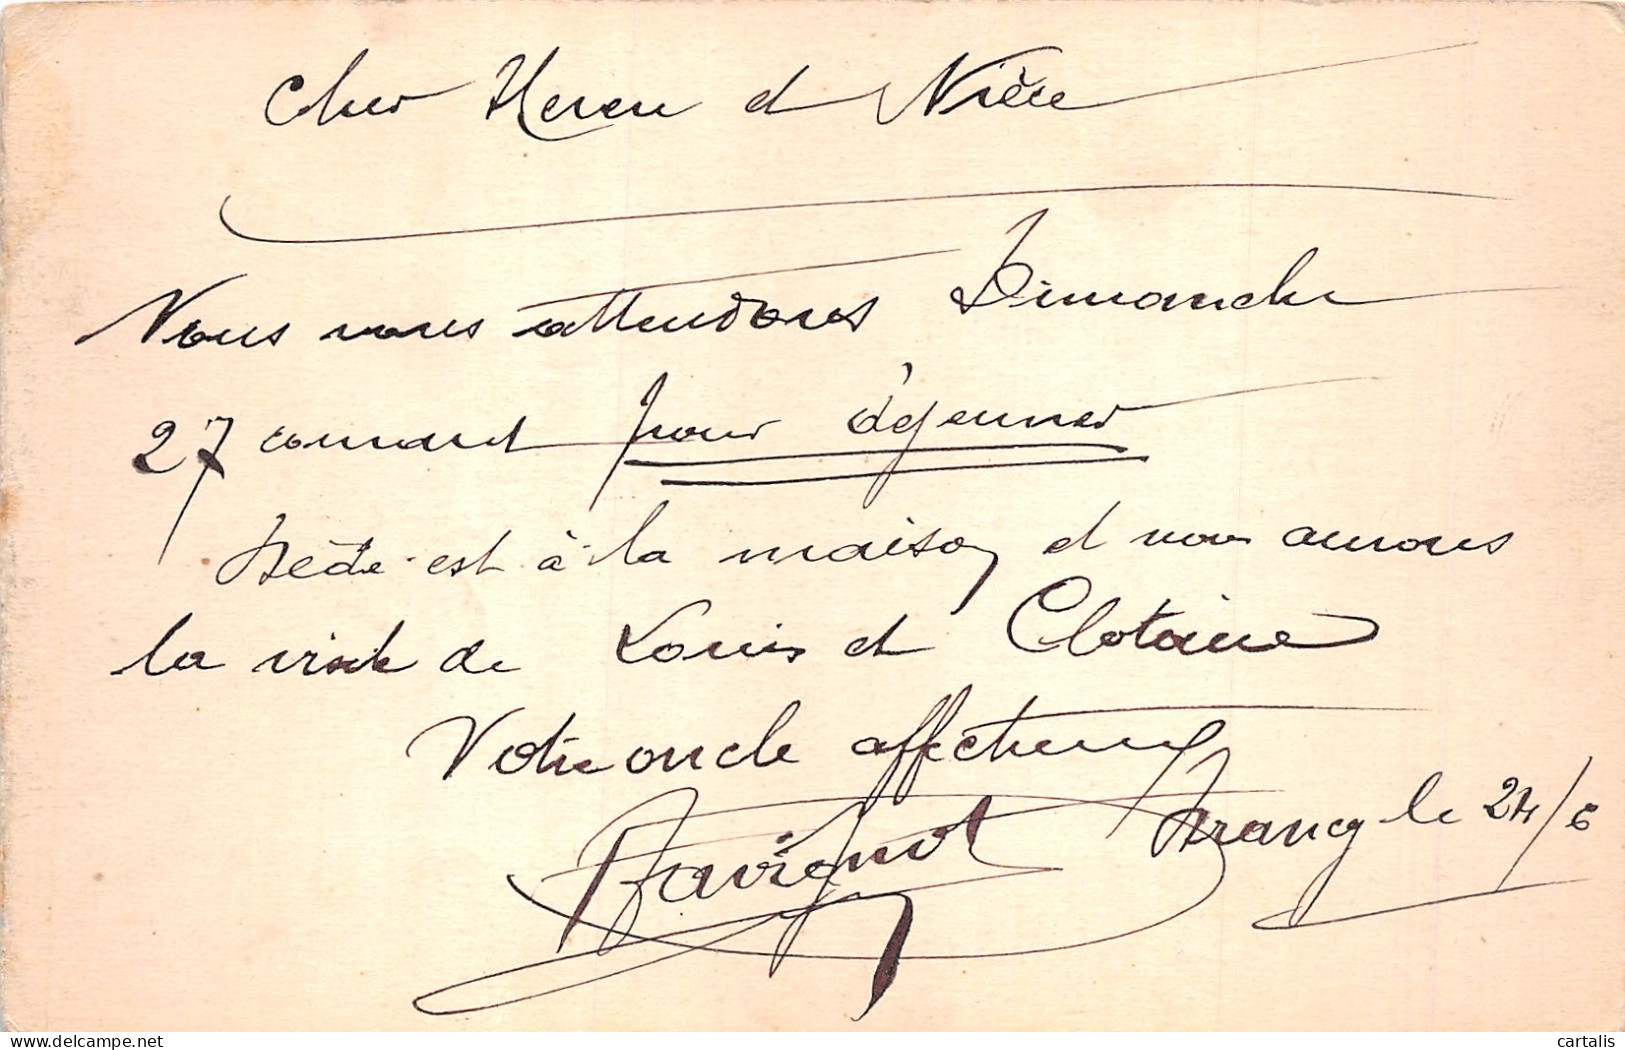 Cher Neveu et Nièce
Nous vous attendons Dimanche
27 courant pour déjeuner
Dédé est à la maison et nous aurons
la visite de Louis et Clotaire
Votre oncle affectueux
Ravignot
Drancy le 24/6
delcampe.net
cartalis